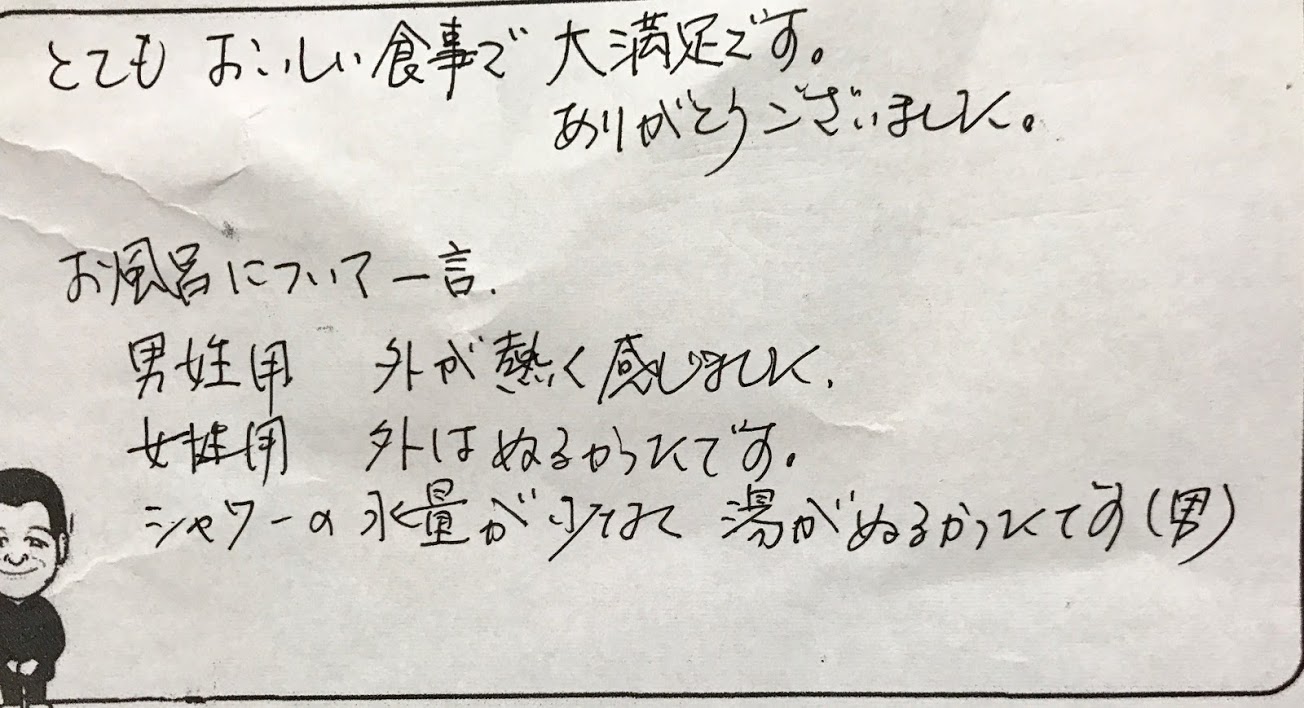 とてもおいしい食事で 大満足です。
ありがとうございました。
お風呂について一言.
男性用 外が熱く感じました.
女性用 外はぬるかったです。
シャワーの水量が少なく 湯がぬるかったです(男)